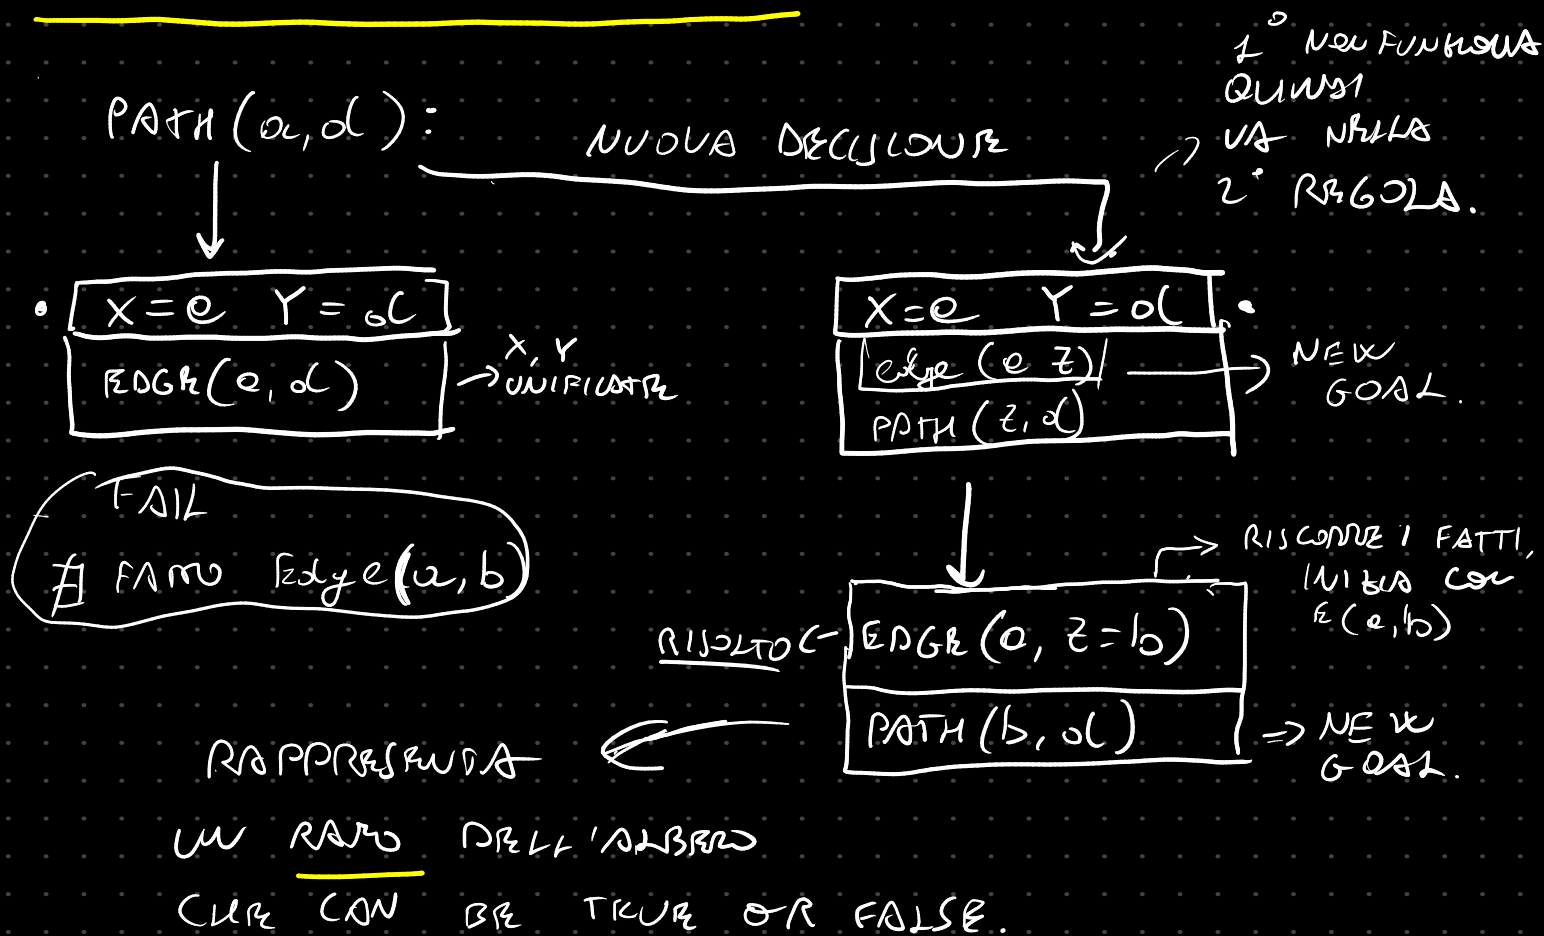 PATH(a,d):
NUOVA DECISIONE
1° NON FUNZIONA
QUINDI
VA NELLA
2° REGOLA.
X=a Y=d
EDGE(a,d)
X, Y
UNIFICATE
X=a Y=d
edge(a z)
PATH(z,d)
NEW
GOAL.
FAIL
∄ FATTO Edge(a,b)
RISCORRE I FATTI,
INIZIA CON
E(a,b)
RISOLTO
EDGE(a, z=b)
PATH(b,d)
NEW
GOAL.
RAPPRESENTA
UN RAMO DELL'ALBERO
CHE CAN BE TRUE OR FALSE.